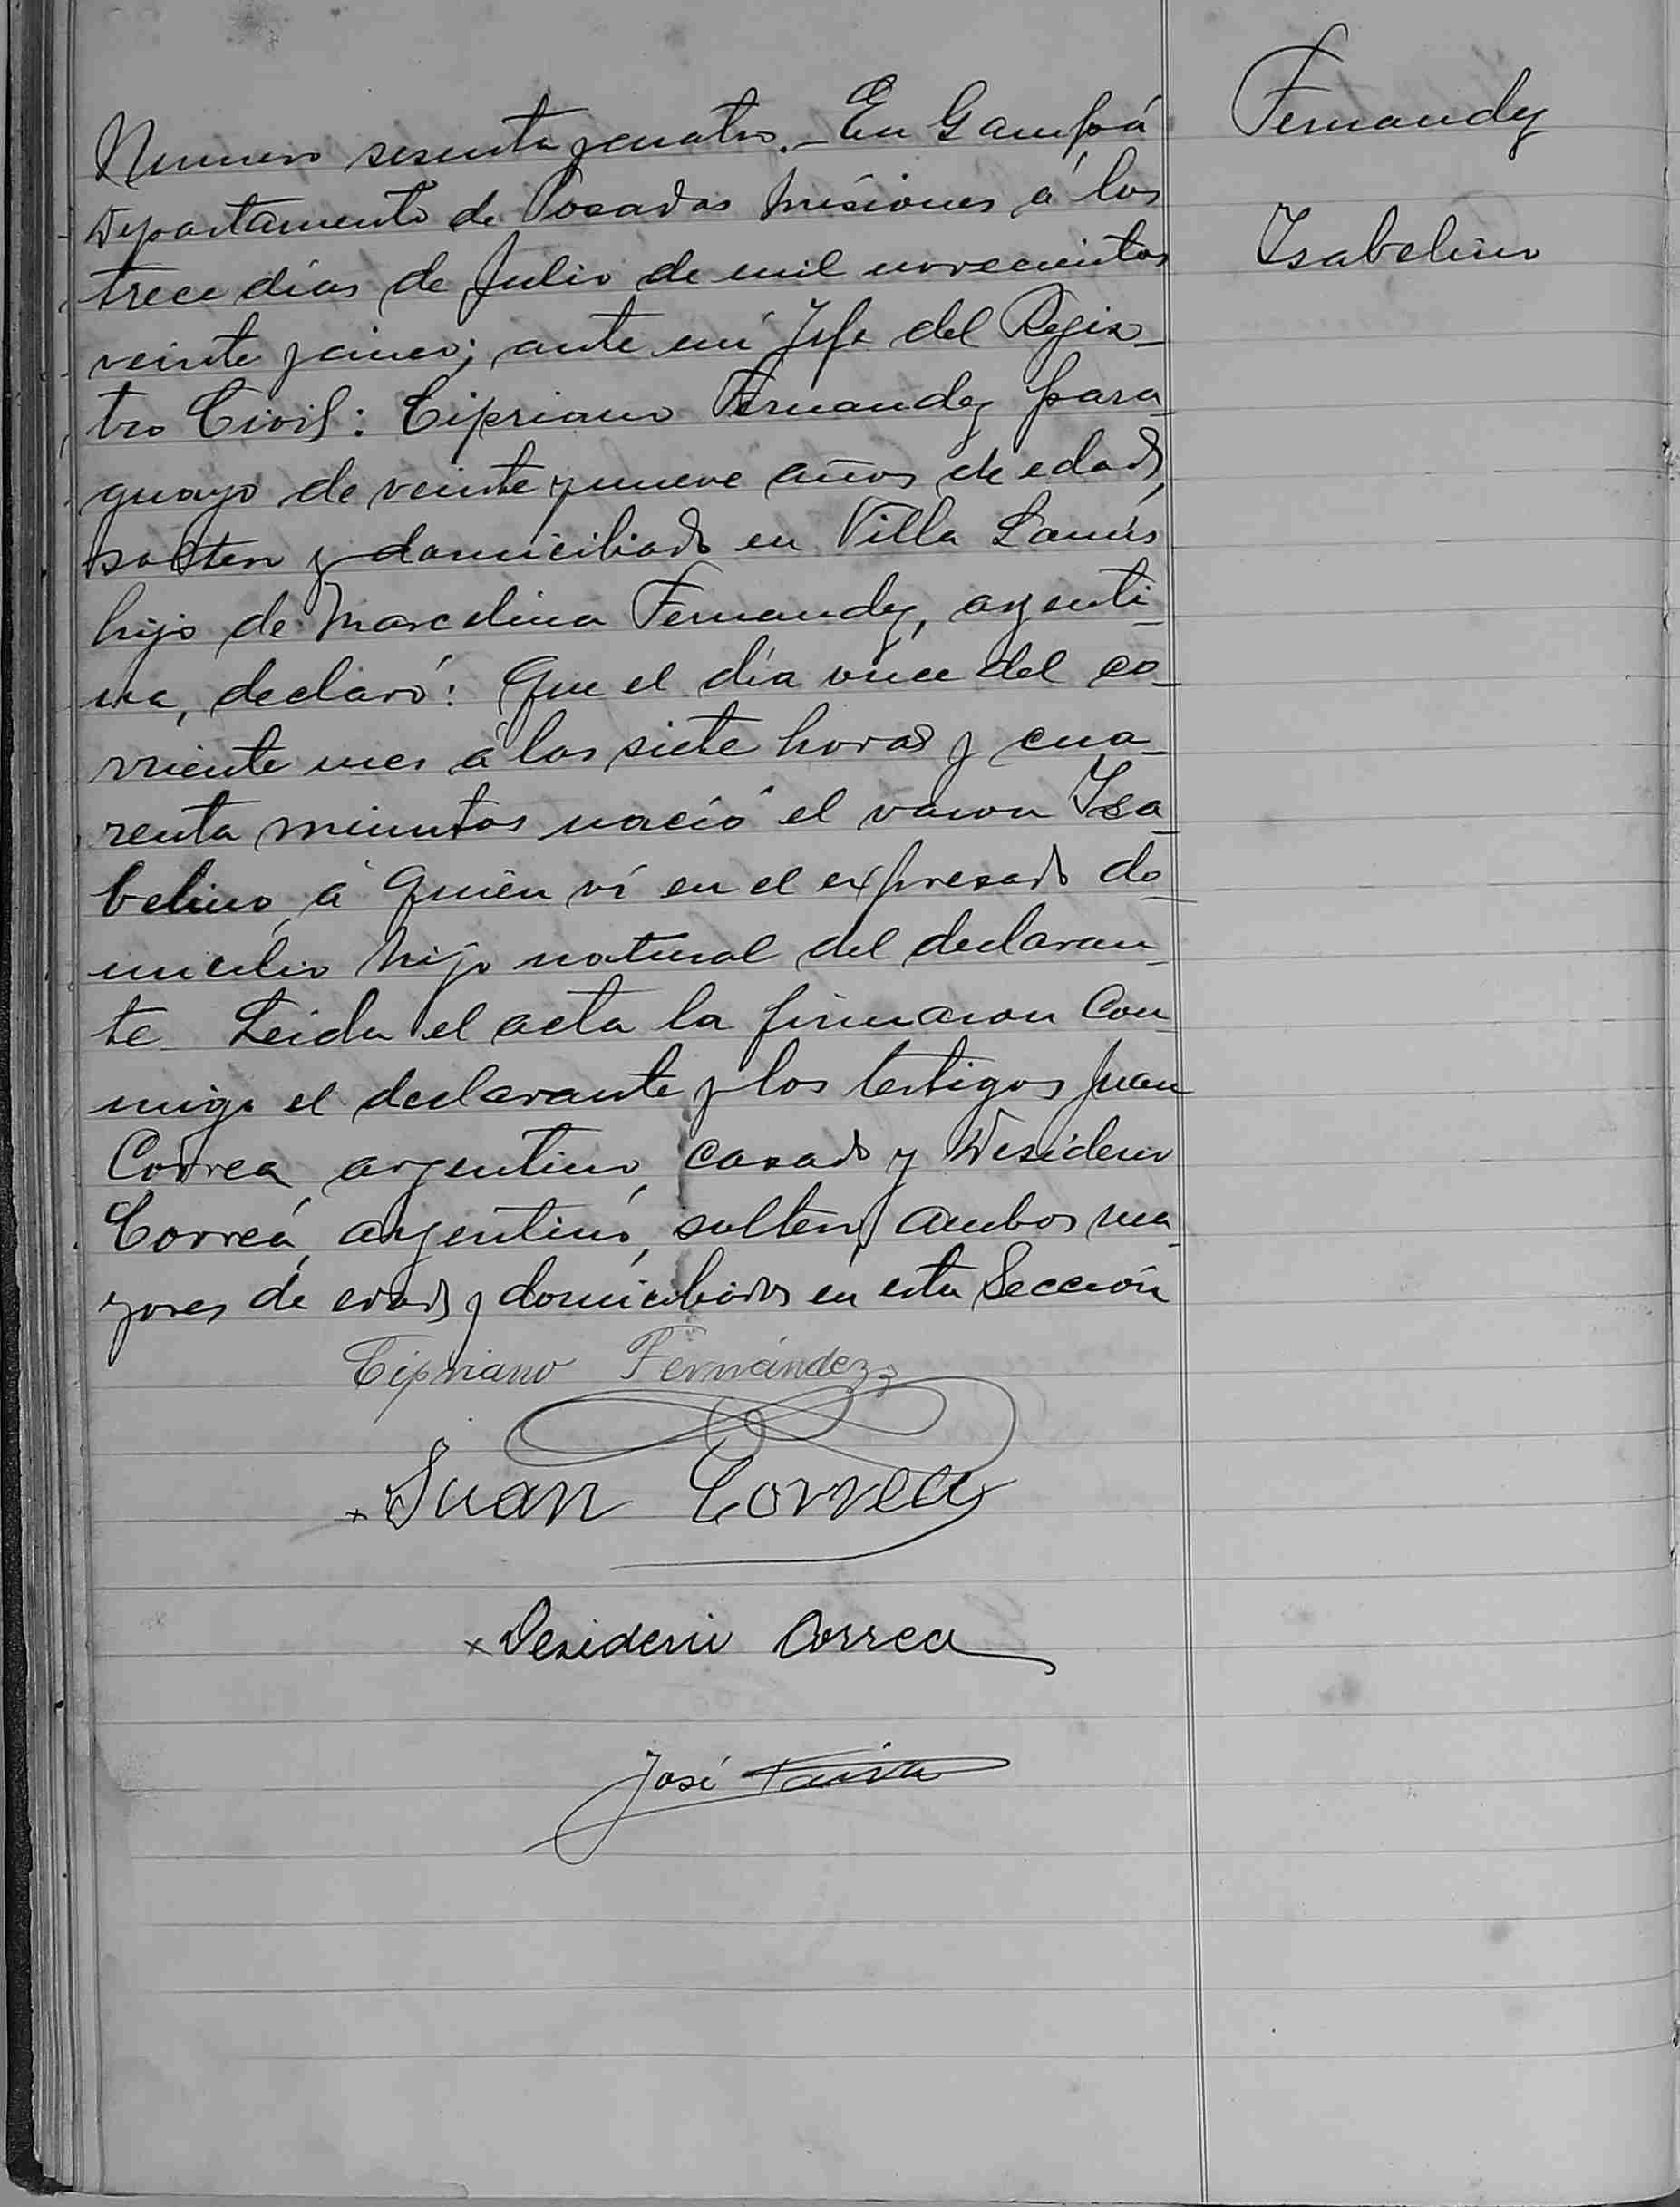 Fernandez
Isabelino
Numero sesenta y cuatro.- En Gamfoá
Departamento de Posadas Misiones á los
trece días de Julio de mil novecientos
veinte y cinco; ante mí Jefe del Regis-
tro Civil: Cipriano Fernandez para-
guayo de veinte y nueve años de edad,
soltero y domiciliado en Villa Lanús
hijo de Marcelina Fernandez, argenti-
na, declaró: Que el día once del co-
rriente mes á las siete horas y cua-
renta minutos nació el varon Isa-
belino, á quien ví en el expresado do-
micilio hijo natural del declaran-
te. Leida el acta la firmaron con-
migo el declarante y los testigos Juan
Correa, argentino, casado y Desiderio
Correa, argentino, soltero, ambos ma-
yores de edad y domiciliados en esta Sección
Cipriano Fernández
x Juan Correa
x Desiderio Correa
José Paiva